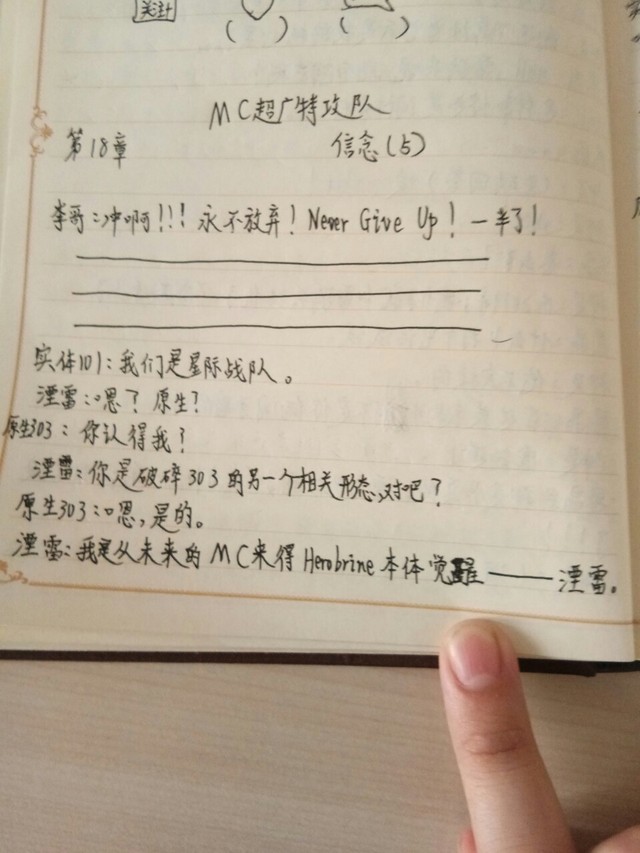 关注
( ) ( )
MC超广特攻队
第18章 信念(5)
李哥:冲啊!!! 永不放弃! Never Give Up! 一半了!
实体101:我们是星际战队。
湮雷:嗯? 原生?
原生303:你认得我?
湮雷:你是破碎303的另一个相关形态,对吧?
原生303:嗯,是的。
湮雷:我是从未来的MC来得Herobrine本体觉醒——湮雷。